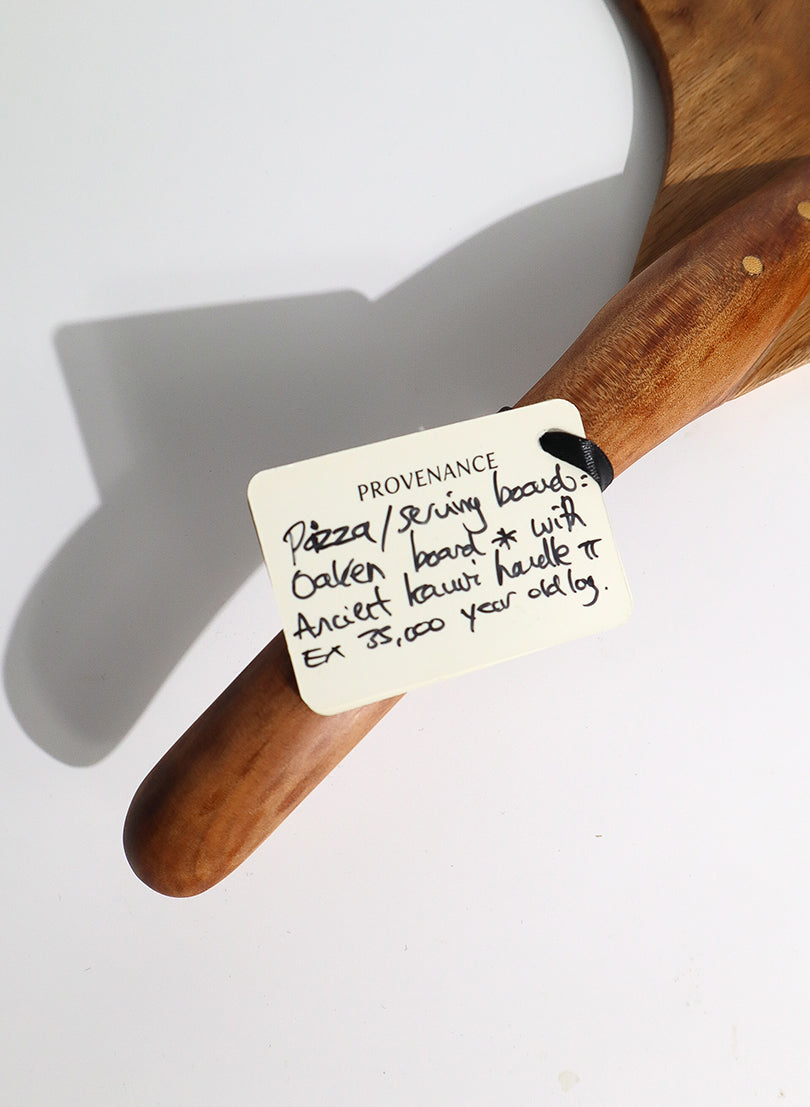 PROVENANCE
Pizza/serving board:
Oaken board * with
Ancient kauri handle π
Ex 35,000 year old log.